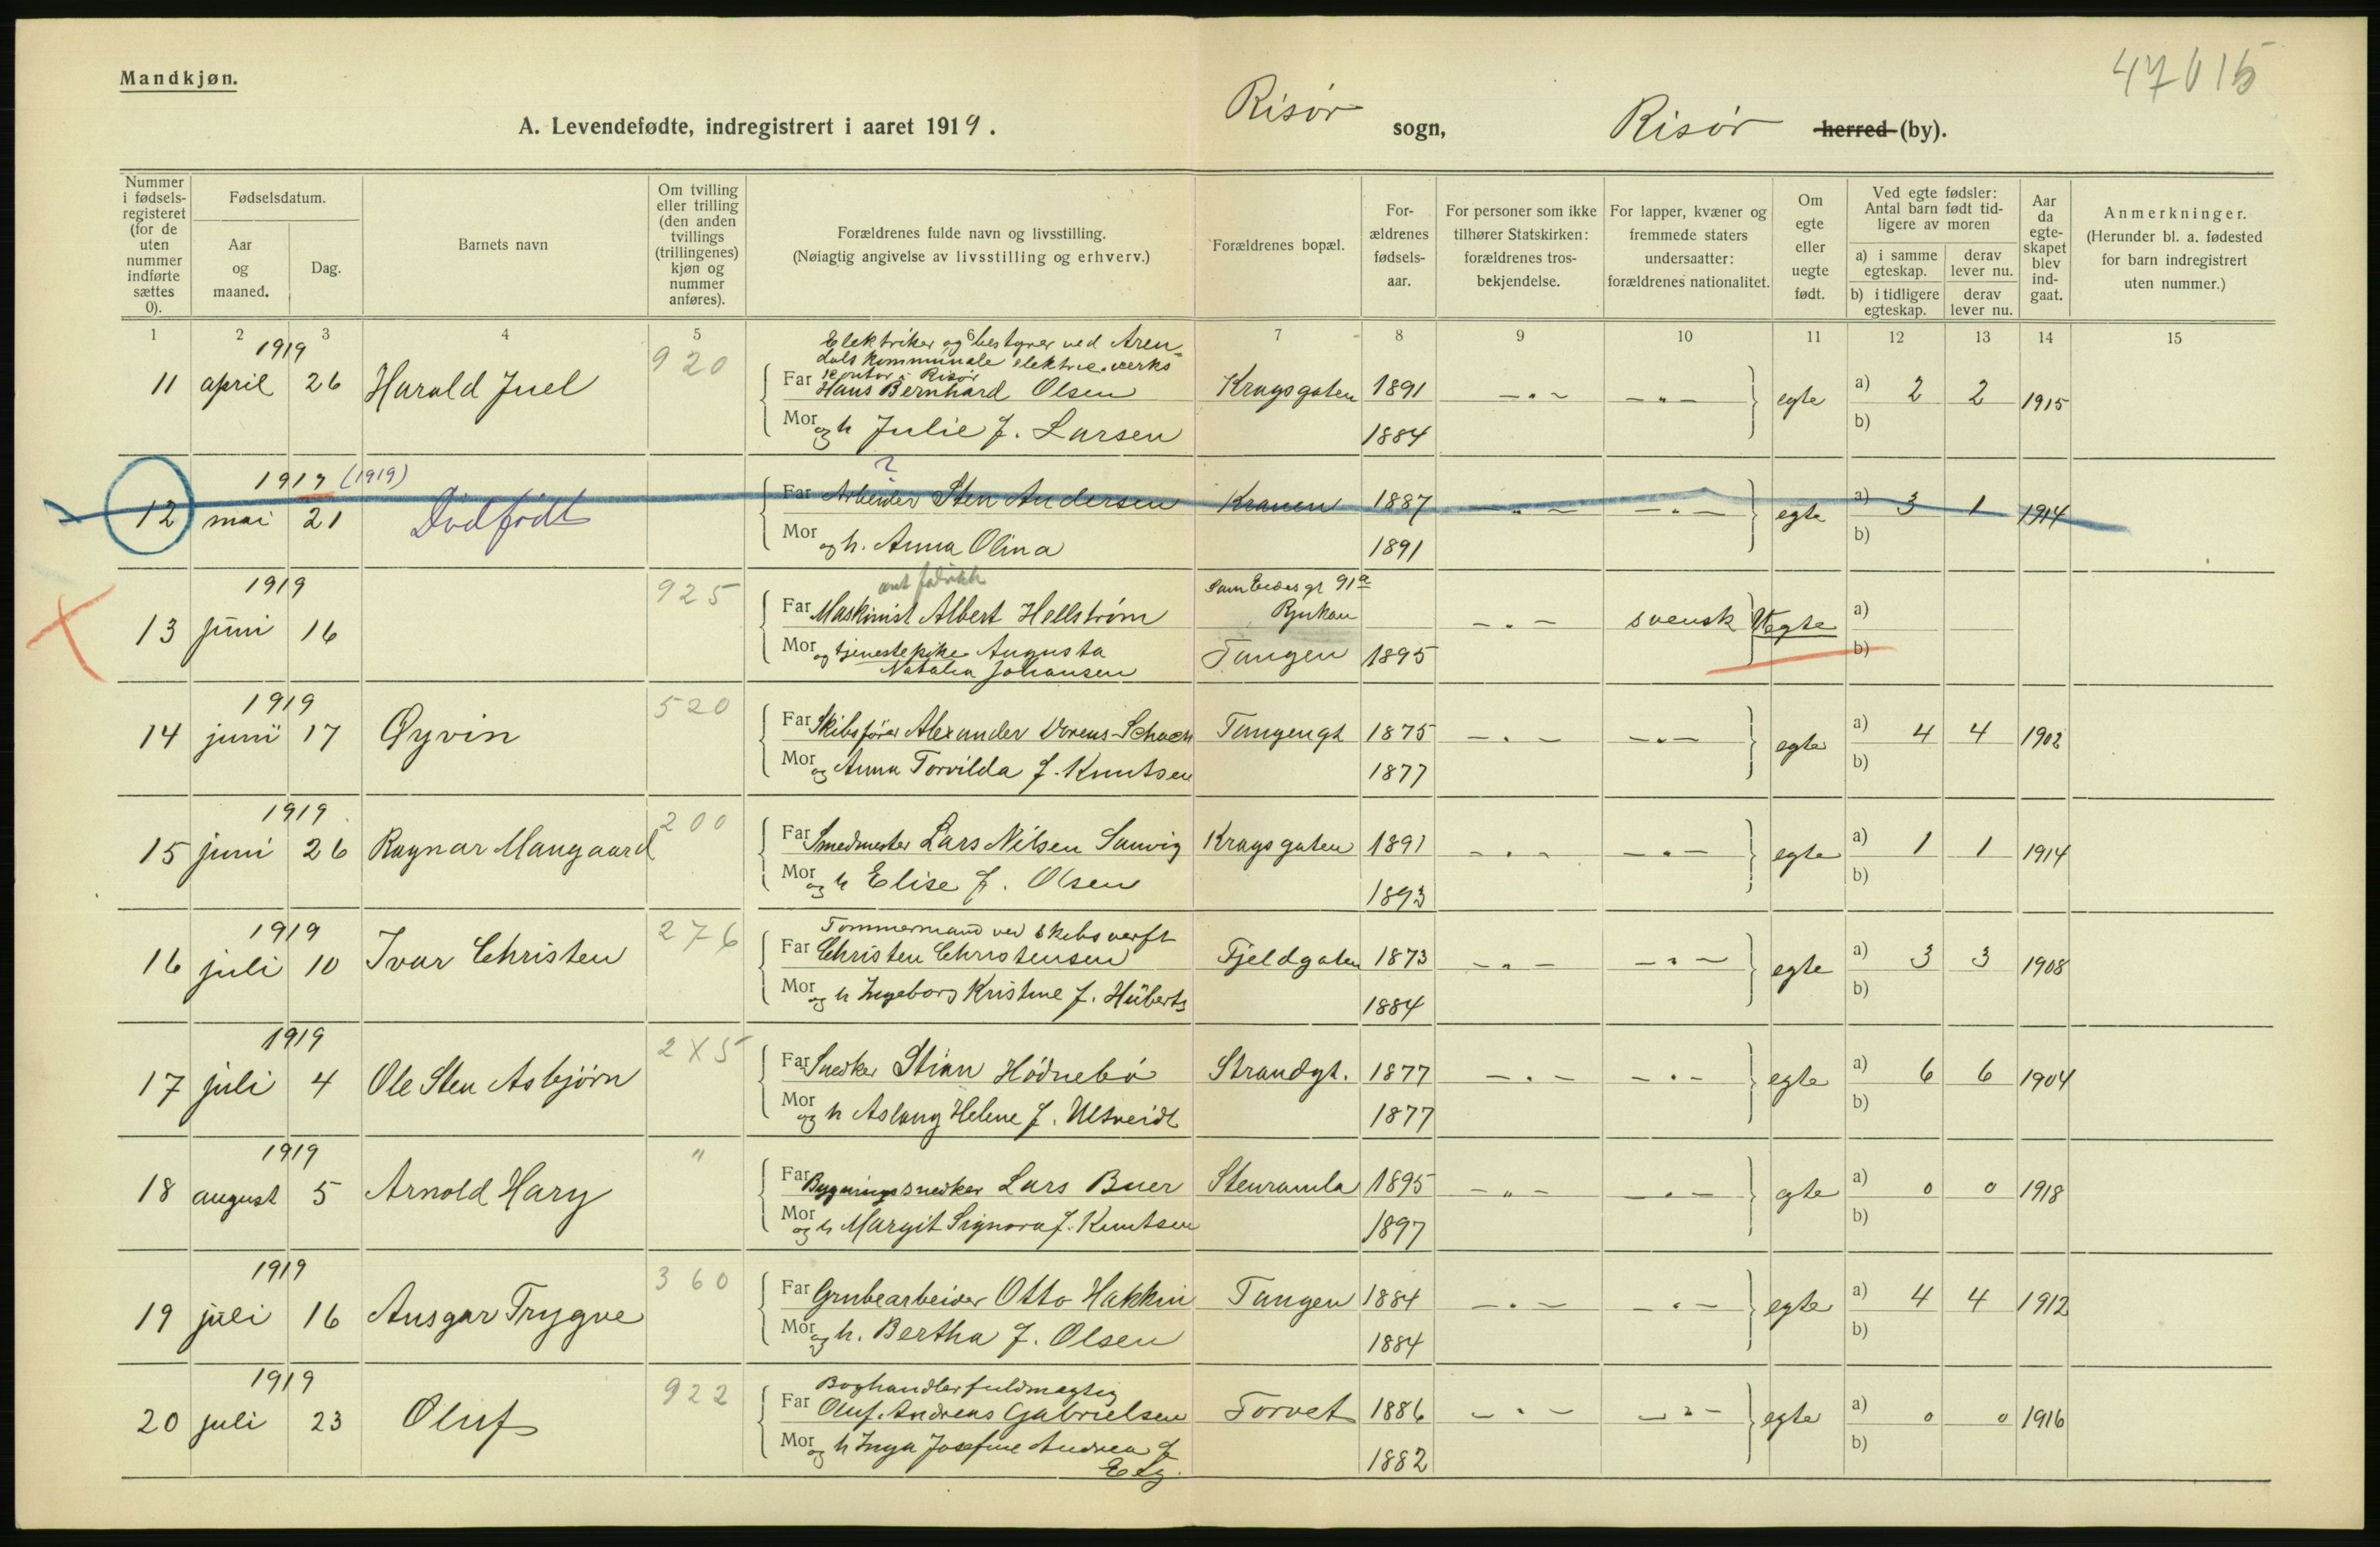 47015
Mandkjøn.
A. Levendefødte, indregistrert i aaret 1919. Risør sogn, Risør herred (by).
Nummer i fødsels-registeret (for de uten nummer indførte sættes 0).
Fødselsdatum.
Aar og maaned.
Dag.
Barnets navn
Om tvilling eller trilling (den anden tvillings (trillingenes) kjøn og nummer anføres).
Forældrenes fulde navn og livsstilling.
(Nøiagtig angivelse av livsstilling og erhverv.)
Forældrenes bopæl.
For-ældrenes fødsels-aar.
For personer som ikke tilhører Statskirken: forældrenes tros-bekjendelse.
For lapper, kvæner og fremmede staters undersaatter: forældrenes nationalitet.
Om egte eller uegte født.
Ved egte fødsler: Antal barn født tid-ligere av moren
a) i samme egteskap.
derav lever nu.
b) i tidligere egteskap.
derav lever nu.
Aar da egte-skapet blev ind-gaat.
Anmerkninger.
(Herunder bl. a. fødested for barn indregistrert uten nummer.)
1 2 3 4 5 6 7 8 9 10 11 12 13 14 15
1919 920 Elektriker og bestyrer ved Aren=
dals kommunale elektric. verks
kontor i Risør
11 april 26 Harald Juel Far Hans Bernhard Olsen Kragsgaten 1891 – „ – – „ – egte a) 2 2 1915
Mor og h Julie f. Larsen 1884 b)
1919 (1919) ?
12 mai 21 Dødfødt Far Arbeider Sten Andersen Kranen 1887 – „ – – „ – egte a) 3 1 1914
Mor og h. Anna Olina 1891 b)
1919 925 Sam Eydes gt 91a
13 juni 16 Far Maskinist Albert Hellstrøm Rjukan – „ – svensk Uegte a)
Mor og tjenestepike Augusta Tangen 1895 b)
Natalia Johansen
1919 520
14 juni 17 Øyvin Far Skibsfører Alexander Vorens-Schach Tangengt 1875 – „ – – „ – egte a) 4 4 1902
Mor og Anna Torvilda f. Knutsen 1877 b)
1919 200
15 juni 26 Ragnar Mangaard Far Smedmester Lars Nilsen Sanvig Kragsgaten 1891 – „ – – „ – egte a) 1 1 1914
Mor og h Elise f. Olsen 1893 b)
1919 276 Tømmermand ved skibsverft
16 juli 10 Ivar Christen Far Christen Christensen Fjeldgaten 1873 – „ – – „ – egte a) 3 3 1908
Mor og h Ingeborg Kristine f. Hüberts 1884 b)
1919 2X5
17 juli 4 Ole Sten Asbjørn Far Snedker Stian Hødnebø Strandgt. 1877 – „ – – „ – egte a) 6 6 1904
Mor og h Aslaug Helene f. Ultveidt 1877 b)
1919 "
18 august 5 Arnold Hary Far Bygningssnedker Lars Buer Stenramla 1895 – „ – – „ – egte a) 0 0 1918
Mor og h Margit Signora f. Knutsen 1897 b)
1919 360
19 juli 16 Ansgar Trygve Far Grubearbeider Otto Hakkin Tangen 1884 – „ – – „ – egte a) 4 4 1912
Mor og h. Bertha f. Olsen 1884 b)
1919 922 Boghandlerfuldmægtig
20 juli 23 Oluf Far Oluf Andreas Gabrielsen Torvet 1886 – „ – – „ – egte a) 0 0 1916
Mor og h Inga Josefine Andrea f 1882 b)